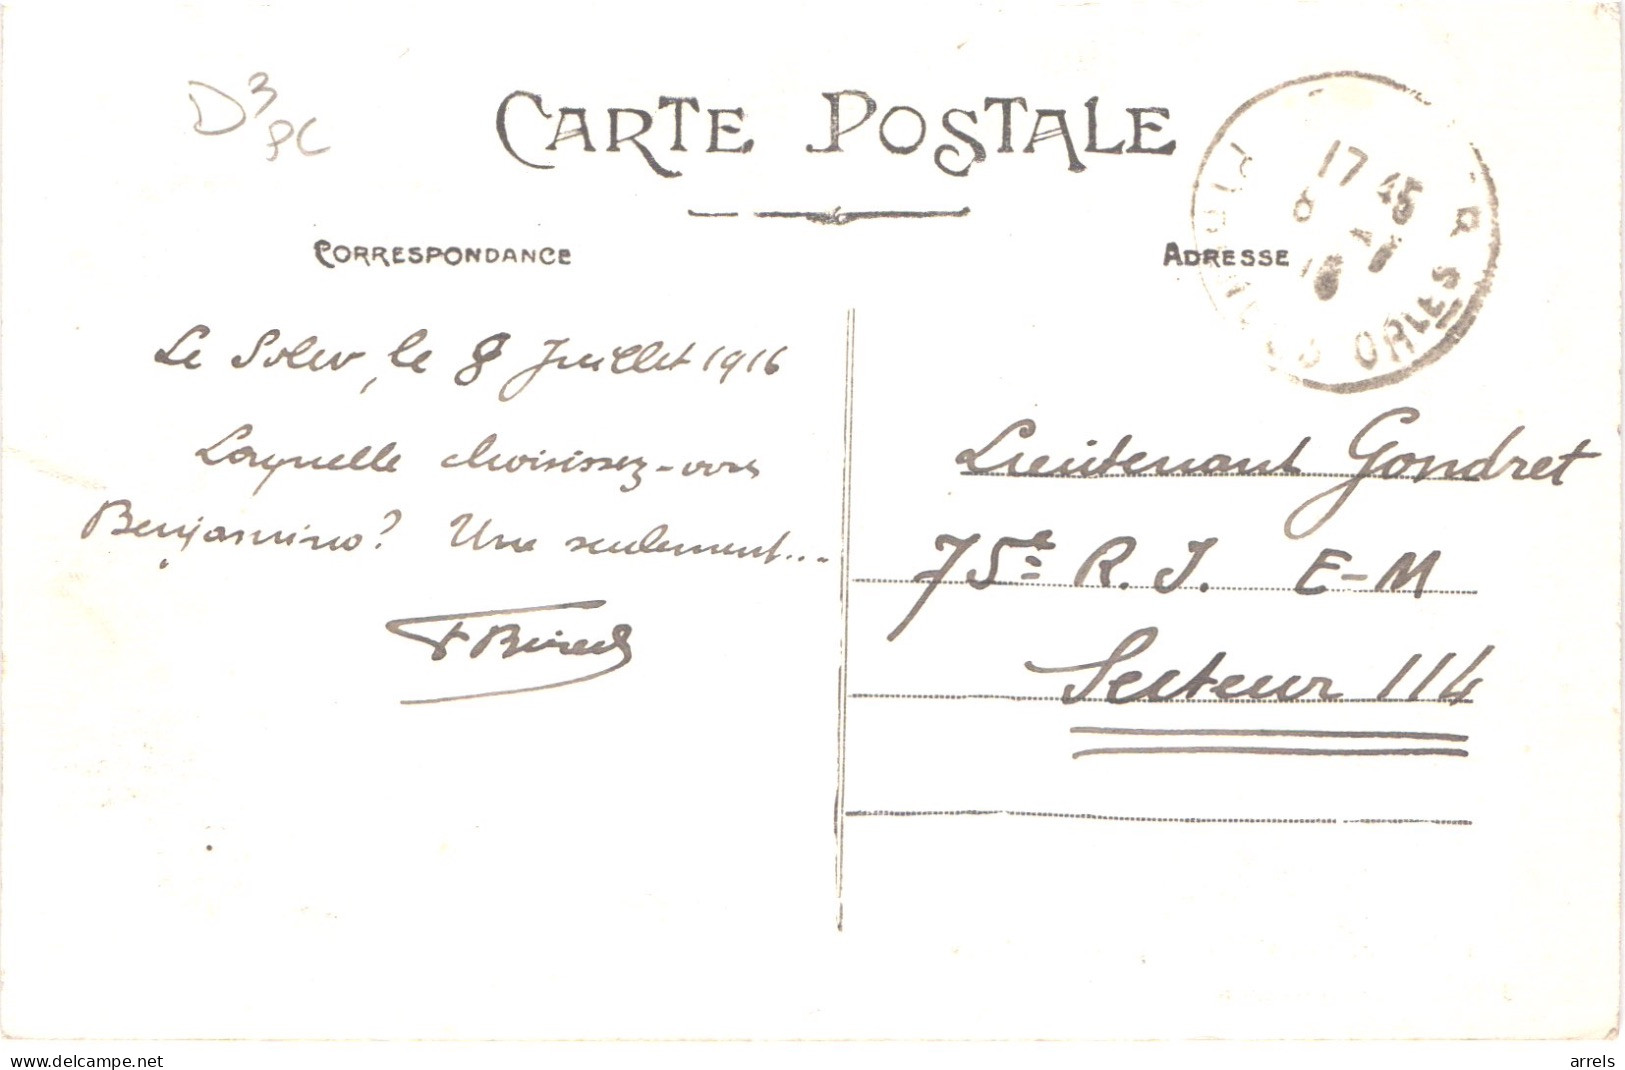 D3
PC
CARTE POSTALE
CORRESPONDANCE
ADRESSE
17 45
ORLES
Le Soler, le 8 Juillet 1916
Laquelle choisissez-vous
Benjamino? Une seulement...
Lieutenant Gondret
75e R. I. E-M
Secteur 114
www.delcampe.net
arrels